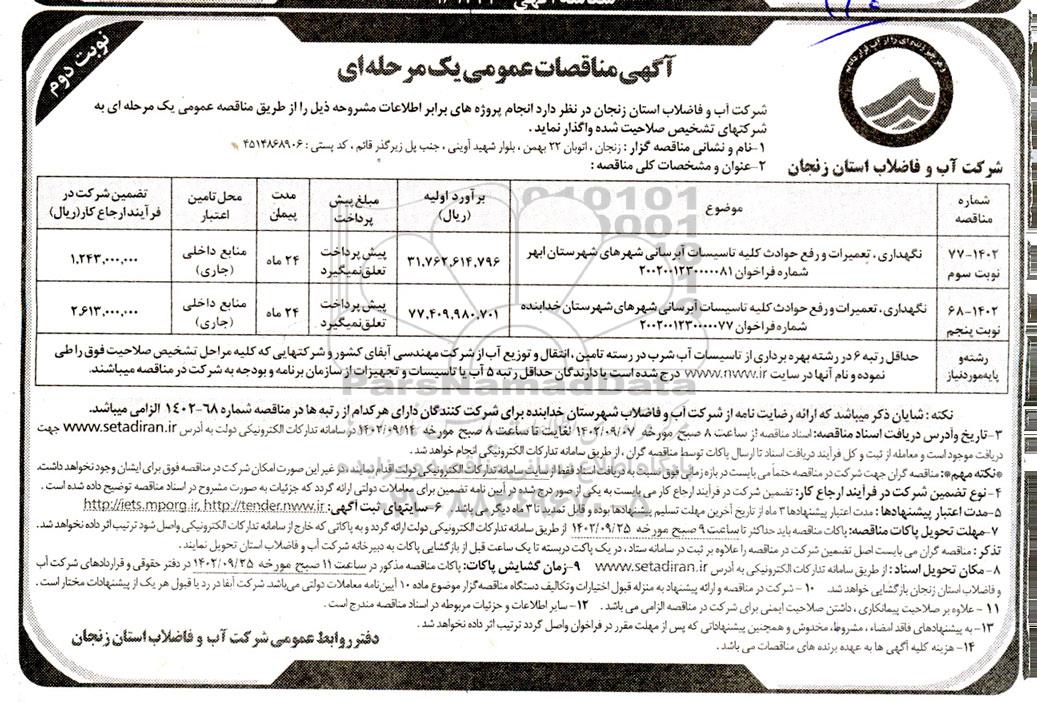 نوبت دوم
آگهی مناقصات عمومی یک مرحله‌ای
شرکت آب و فاضلاب استان زنجان
شرکت آب و فاضلاب استان زنجان در نظر دارد انجام پروژه های برابر اطلاعات مشروحه ذیل را از طریق مناقصه عمومی یک مرحله ای به
شرکتهای تشخیص صلاحیت شده واگذار نماید.
۱-نام و نشانی مناقصه گزار: زنجان، اتوبان ۲۲ بهمن، بلوار شهید آوینی، جنب پل زیرگذر قائم، کد پستی: ۴۵۱۴۸۶۸۹۰۶
۲-عنوان و مشخصات کلی مناقصه:
شماره مناقصه | موضوع | برآورد اولیه (ریال) | مبلغ پیش پرداخت | مدت پیمان | محل تامین اعتبار | تضمین شرکت در فرآیند ارجاع کار(ریال)
۷۷-۱۴۰۲ نوبت سوم | نگهداری، تعمیرات و رفع حوادث کلیه تاسیسات آبرسانی شهرهای شهرستان ابهر شماره فراخوان ۲۰۰۲۰۰۱۲۳۰۰۰۰۰۸۱ | ۳۱،۷۶۲،۶۱۴،۷۹۶ | پیش پرداخت تعلق نمیگیرد | ۲۴ ماه | منابع داخلی (جاری) | ۱،۲۴۳،۰۰۰،۰۰۰
۶۸-۱۴۰۲ نوبت پنجم | نگهداری، تعمیرات و رفع حوادث کلیه تاسیسات آبرسانی شهرهای شهرستان خدابنده شماره فراخوان ۲۰۰۲۰۰۱۲۳۰۰۰۰۰۷۷ | ۷۷،۴۰۹،۹۸۰،۷۰۱ | پیش پرداخت تعلق نمیگیرد | ۲۴ ماه | منابع داخلی (جاری) | ۲،۶۱۳،۰۰۰،۰۰۰
رشته و پایه مورد نیاز | حداقل رتبه ۶ در رشته بهره برداری از تاسیسات آب شرب در رسته تامین، انتقال و توزیع آب از شرکت مهندسی آبفای کشور و شرکتهایی که کلیه مراحل تشخیص صلاحیت فوق را طی
نموده و نام آنها در سایت www.nww.ir درج شده است یا دارندگان حداقل رتبه ۵ آب یا تاسیسات و تجهیزات از سازمان برنامه و بودجه به شرکت در مناقصه میباشند.
نکته: شایان ذکر میباشد که ارائه رضایت نامه از شرکت آب و فاضلاب شهرستان خدابنده برای شرکت کنندگان دارای هر کدام از رتبه ها در مناقصه شماره ۶۸-۱۴۰۲ الزامی میباشد.
۳-تاریخ و آدرس دریافت اسناد مناقصه: اسناد مناقصه از ساعت ۸ صبح مورخه ۱۴۰۲/۰۹/۰۷ لغایت تا ساعت ۸ صبح مورخه ۱۴۰۲/۰۹/۱۴ در سامانه تدارکات الکترونیکی دولت به آدرس www.setadiran.ir جهت
دریافت موجود است و معامله از ثبت و کل فرآیند دریافت اسناد تا ارسال پاکات توسط مناقصه گران، از طریق سامانه تدارکات الکترونیکی انجام خواهد شد.
*نکته مهم*: مناقصه گران جهت شرکت در مناقصه حتماً می بایست در بازه زمانی فوق نسبت به دریافت اسناد فقط از سایت سامانه تدارکات الکترونیکی دولت اقدام نمایند در غیر این صورت امکان شرکت در مناقصه فوق برای ایشان وجود نخواهد داشت.
۴-نوع تضمین شرکت در فرآیند ارجاع کار: تضمین شرکت در فرآیند ارجاع کار می بایست به یکی از صور درج شده در آیین نامه تضمین برای معاملات دولتی ارائه گردد که جزئیات به صورت مشروح در اسناد مناقصه توضیح داده شده است.
۵-مدت اعتبار پیشنهادها: مدت اعتبار پیشنهادها ۳ ماه از تاریخ آخرین مهلت تسلیم پیشنهادها بوده و قابل تمدید تا ۳ ماه دیگر می باشد ۶-سایتهای ثبت آگهی: http://iets.mporg.ir, http://tender.nww.ir
۷-مهلت تحویل پاکات مناقصه: پاکات مناقصه باید حداکثر تا ساعت ۹ صبح مورخه ۱۴۰۲/۰۹/۲۵ از طریق سامانه تدارکات الکترونیکی دولت ارائه گردد و به پاکاتی که خارج از سامانه تدارکات الکترونیکی واصل شود ترتیب اثر داده نخواهد شد.
تذکر: مناقصه گران می بایست اصل تضمین شرکت در مناقصه را علاوه بر ثبت در سامانه ستاد، در یک پاکت دربسته تا یک ساعت قبل از بازگشایی پاکات به دبیرخانه شرکت آب و فاضلاب استان تحویل نمایند.
۸-مکان تحویل اسناد: از طریق سامانه تدارکات الکترونیکی به آدرس www.setadiran.ir ۹-زمان گشایش پاکات: پاکات مناقصه مذکور در ساعت ۱۱ صبح مورخه ۱۴۰۲/۰۹/۲۵ در دفتر حقوقی و قراردادهای شرکت آب
و فاضلاب استان زنجان بازگشایی خواهد شد. ۱۰- شرکت در مناقصه و ارائه پیشنهاد به منزله قبول اختیارات و تکالیف دستگاه مناقصه گزار موضوع ماده ۱۰ آیین نامه معاملات دولتی می‌باشد شرکت آبفا در رد یا قبول هر یک از پیشنهادات مختار است.
۱۱- علاوه بر صلاحیت پیمانکاری، داشتن صلاحیت ایمنی برای شرکت در مناقصه الزامی می باشد. ۱۲- سایر اطلاعات و جزئیات مربوطه در اسناد مناقصه مندرج است.
۱۳- به پیشنهادهای فاقد امضاء، مشروط، مخدوش و همچنین پیشنهاداتی که پس از مهلت مقرر در فراخوان واصل گردد ترتیب اثر داده نخواهد شد.
۱۴- هزینه کلیه آگهی ها به عهده برنده های مناقصات می باشد.
دفتر روابط عمومی شرکت آب و فاضلاب استان زنجان
ParsNamadData